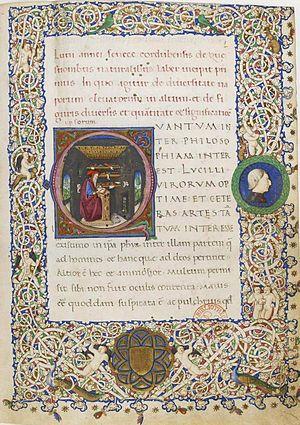 Lucii annei senece cordubensis de que
stionibus naturalibus liber incipit pri
mus In quo agitur de diversitate va
porum elevatorum in altum et de fi
guris diversis et quantitate et significatione
ipsorum
QVANTVM IN
TER PHILOSO
PHIAM INTER
EST LVCILLI
VIRORVM OP
TIME ET CETE
RAS ARTES TA
TVM INTERESSE
existimo in ipsa phia inter illam partem q
ad homines et hanc que ad deos pertinet
Altior est hec et animosior Multum permi
sit sibi non fuit oculis contenta Maius
esse quoddam suspicata est ac pulchrius qd